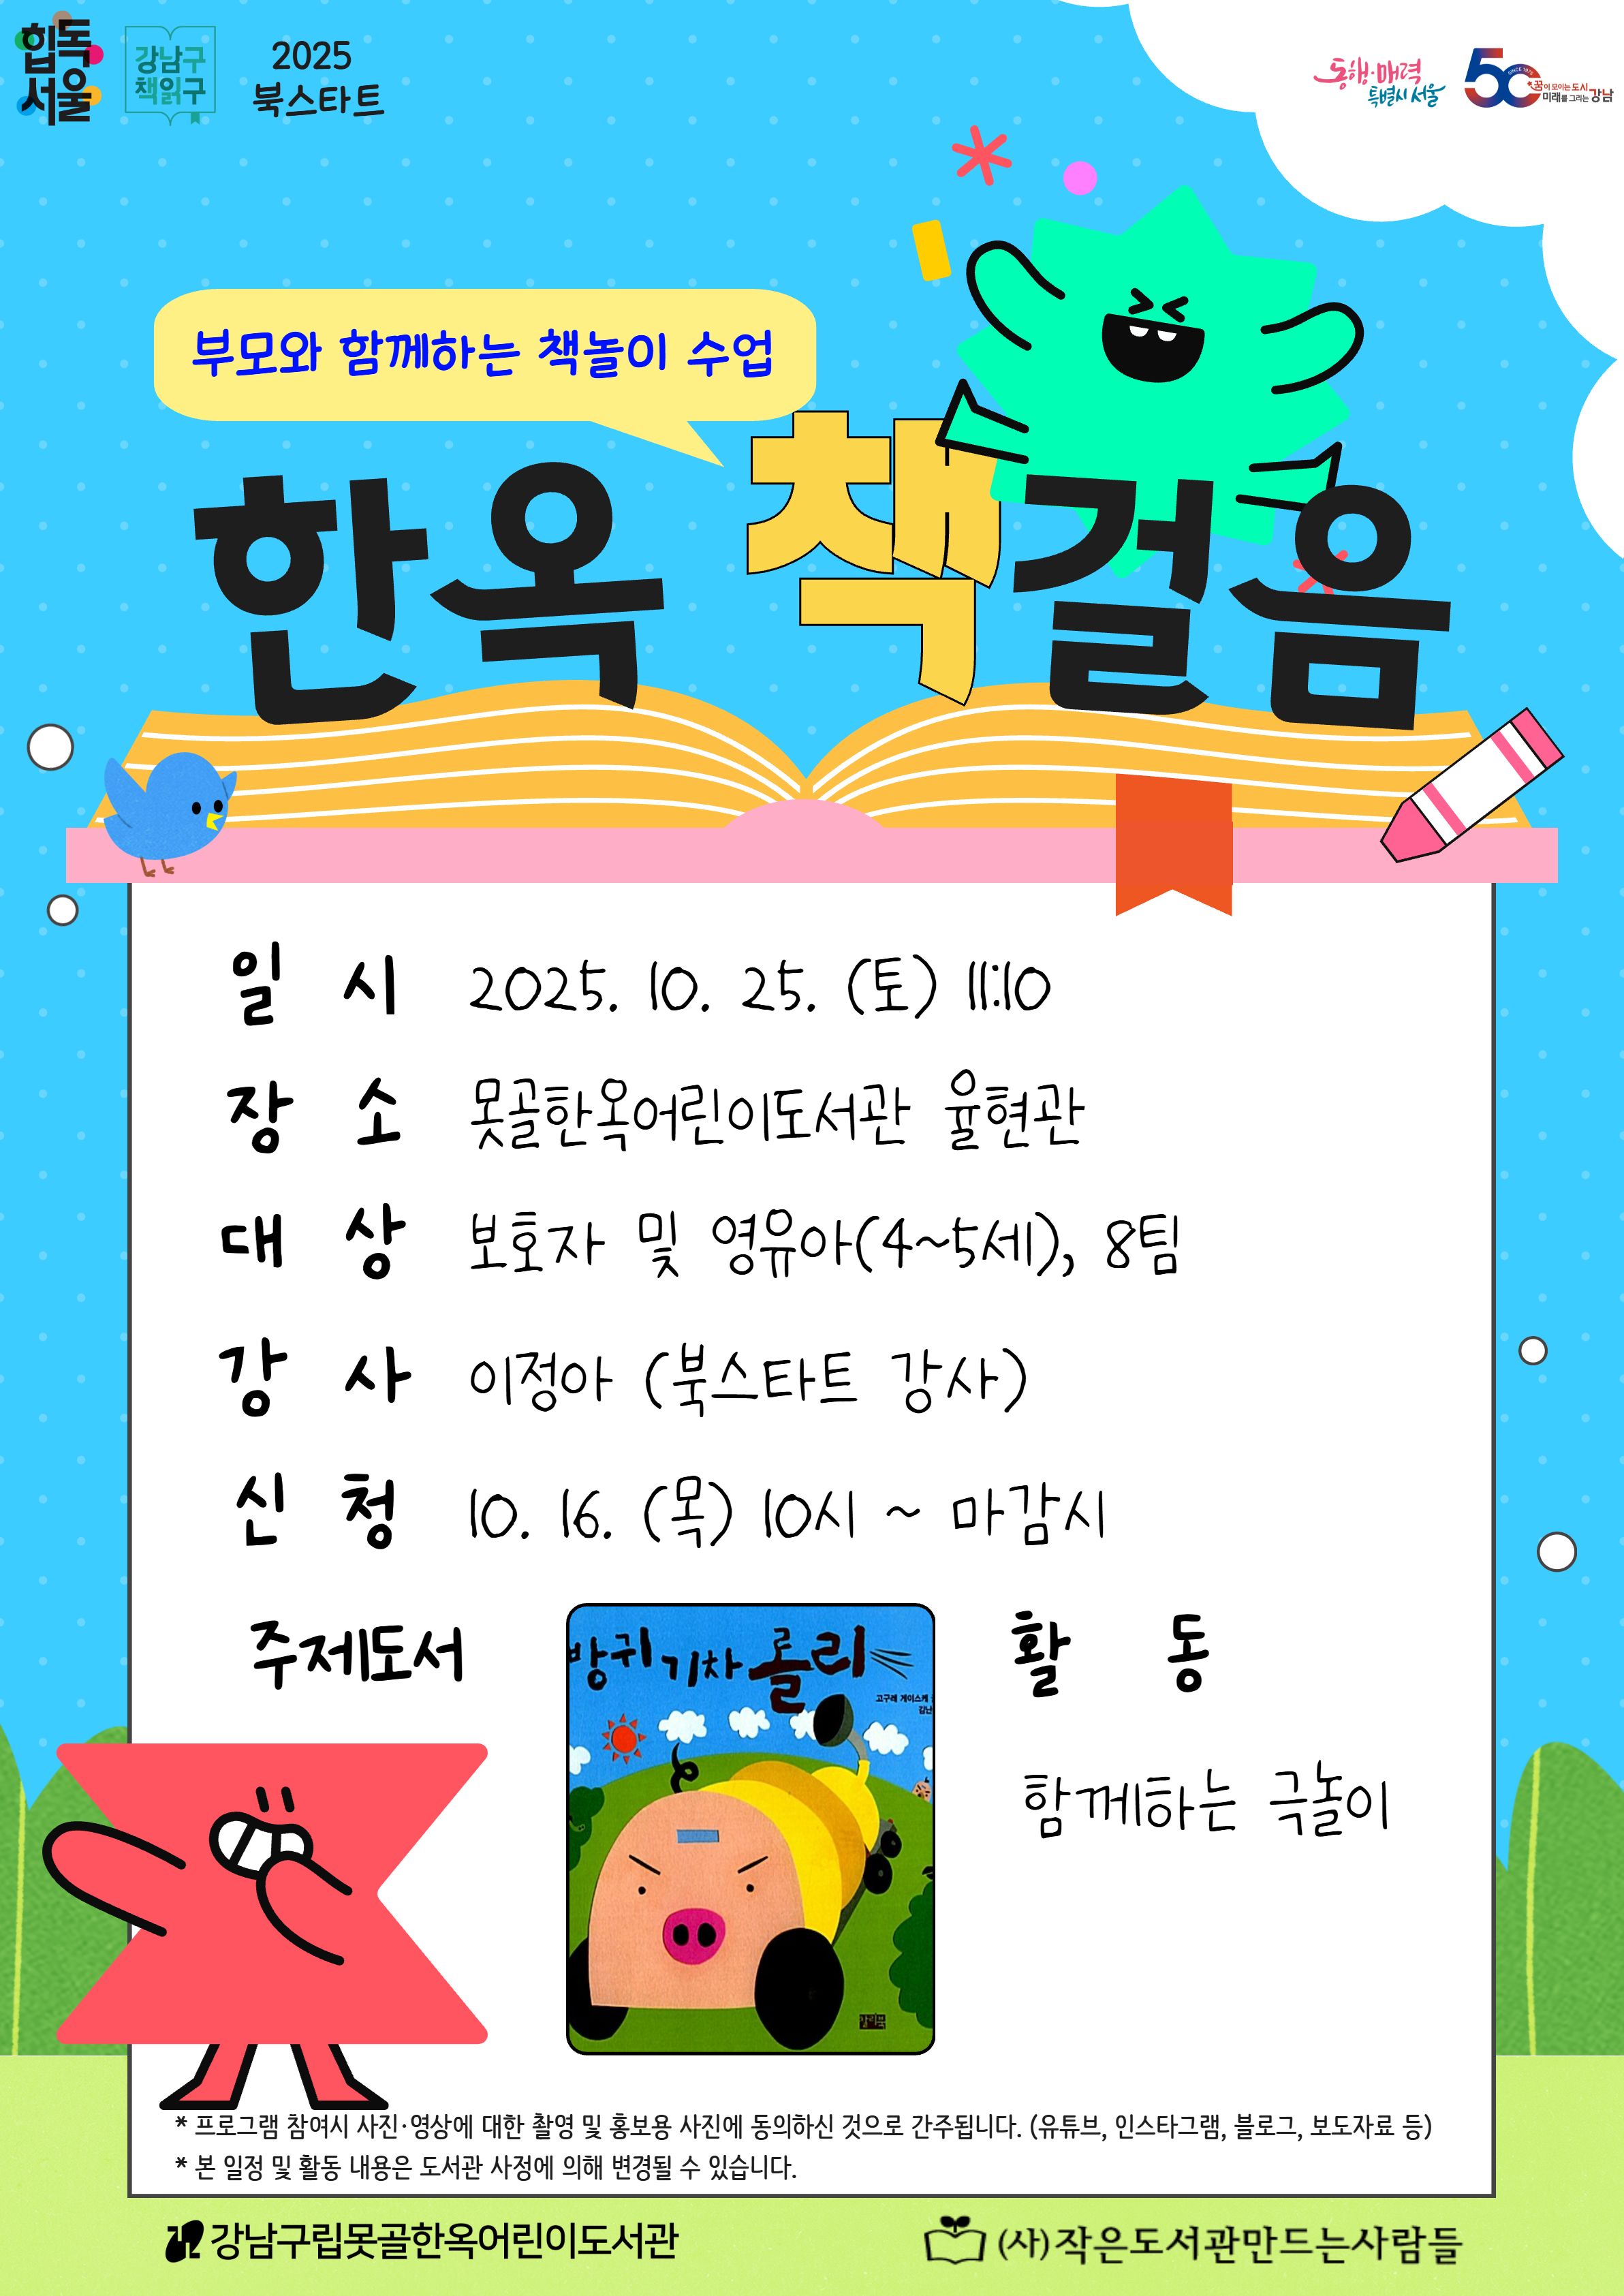 힙독
서울
강남구
책읽구
2025
북스타트
동행·매력
특별시 서울
50
SINCE 1975
꿈이 모이는 도시
미래를 그리는 강남
부모와 함께하는 책놀이 수업
한옥 책걸음
일 시 2025. 10. 25. (토) 11:10
장 소 못골한옥어린이도서관 율현관
대 상 보호자 및 영유아(4~5세), 8팀
강 사 이정아 (북스타트 강사)
신 청 10. 16. (목) 10시 ~ 마감시
주제도서
방귀 기차 롤리
고구레 게이스케
활 동
함께하는 극놀이
* 프로그램 참여시 사진·영상에 대한 촬영 및 홍보용 사진에 동의하신 것으로 간주됩니다. (유튜브, 인스타그램, 블로그, 보도자료 등)
* 본 일정 및 활동 내용은 도서관 사정에 의해 변경될 수 있습니다.
강남구립못골한옥어린이도서관
(사)작은도서관만드는사람들